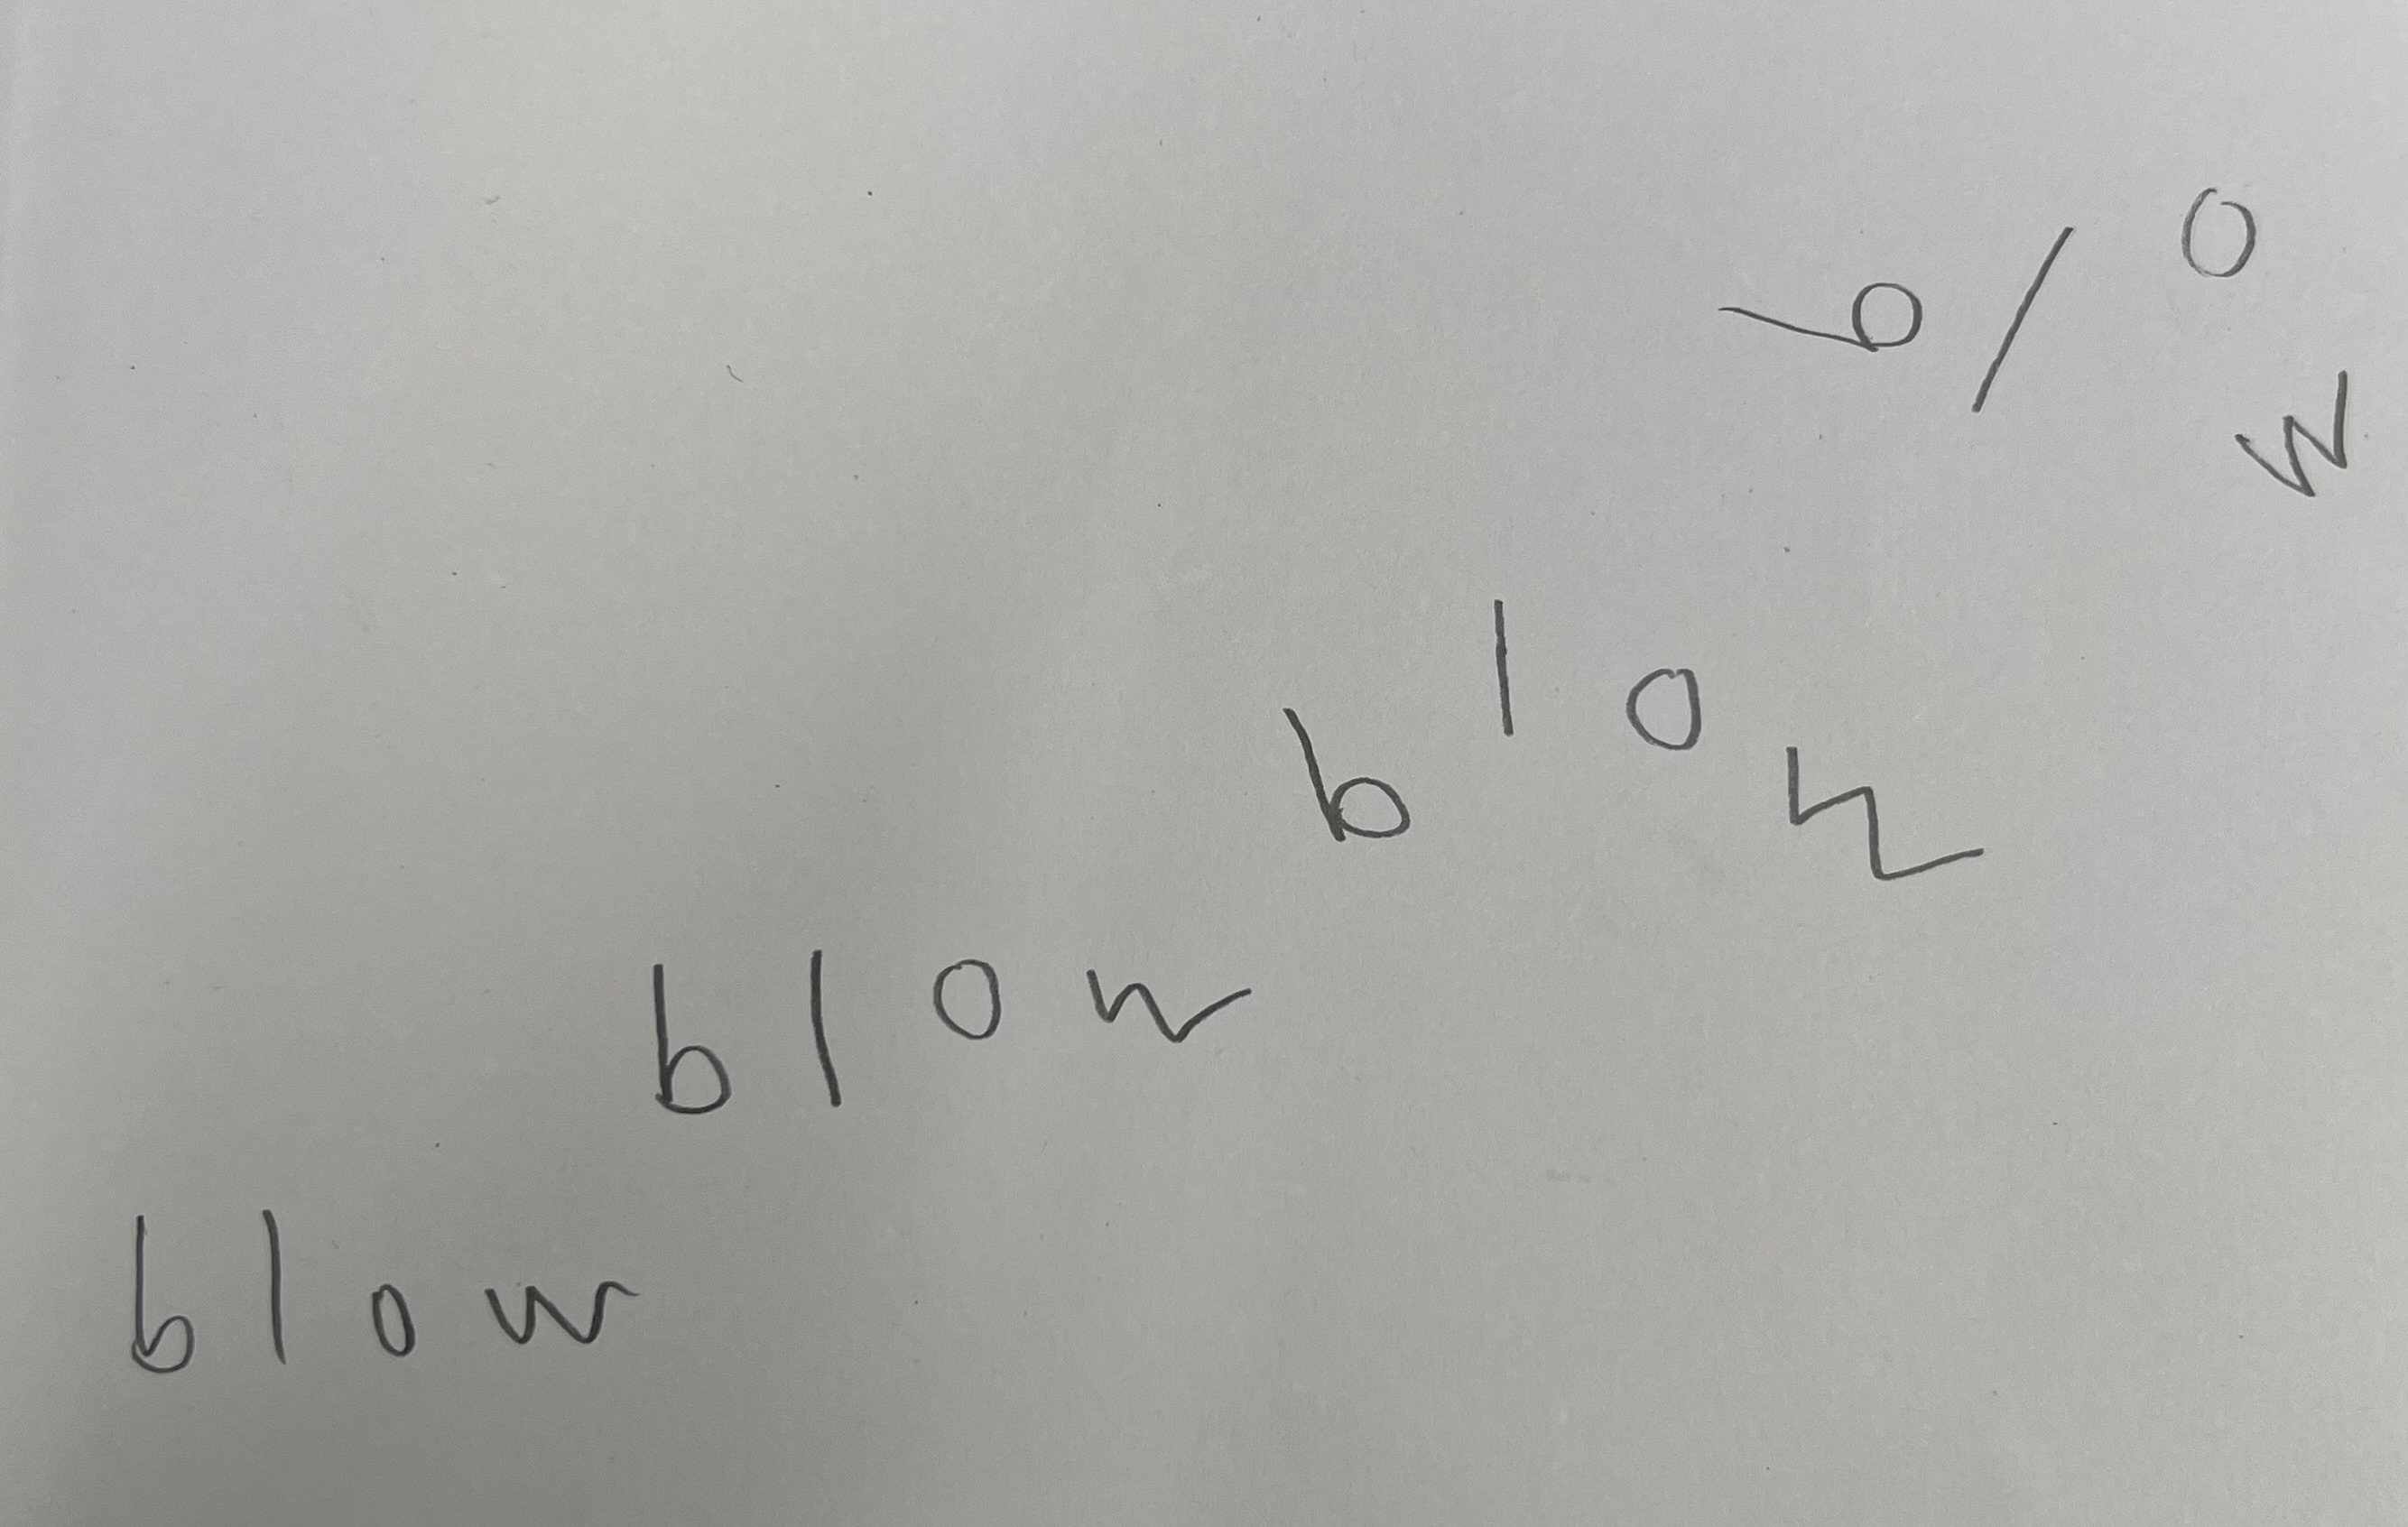 blow
blow
blow
blow